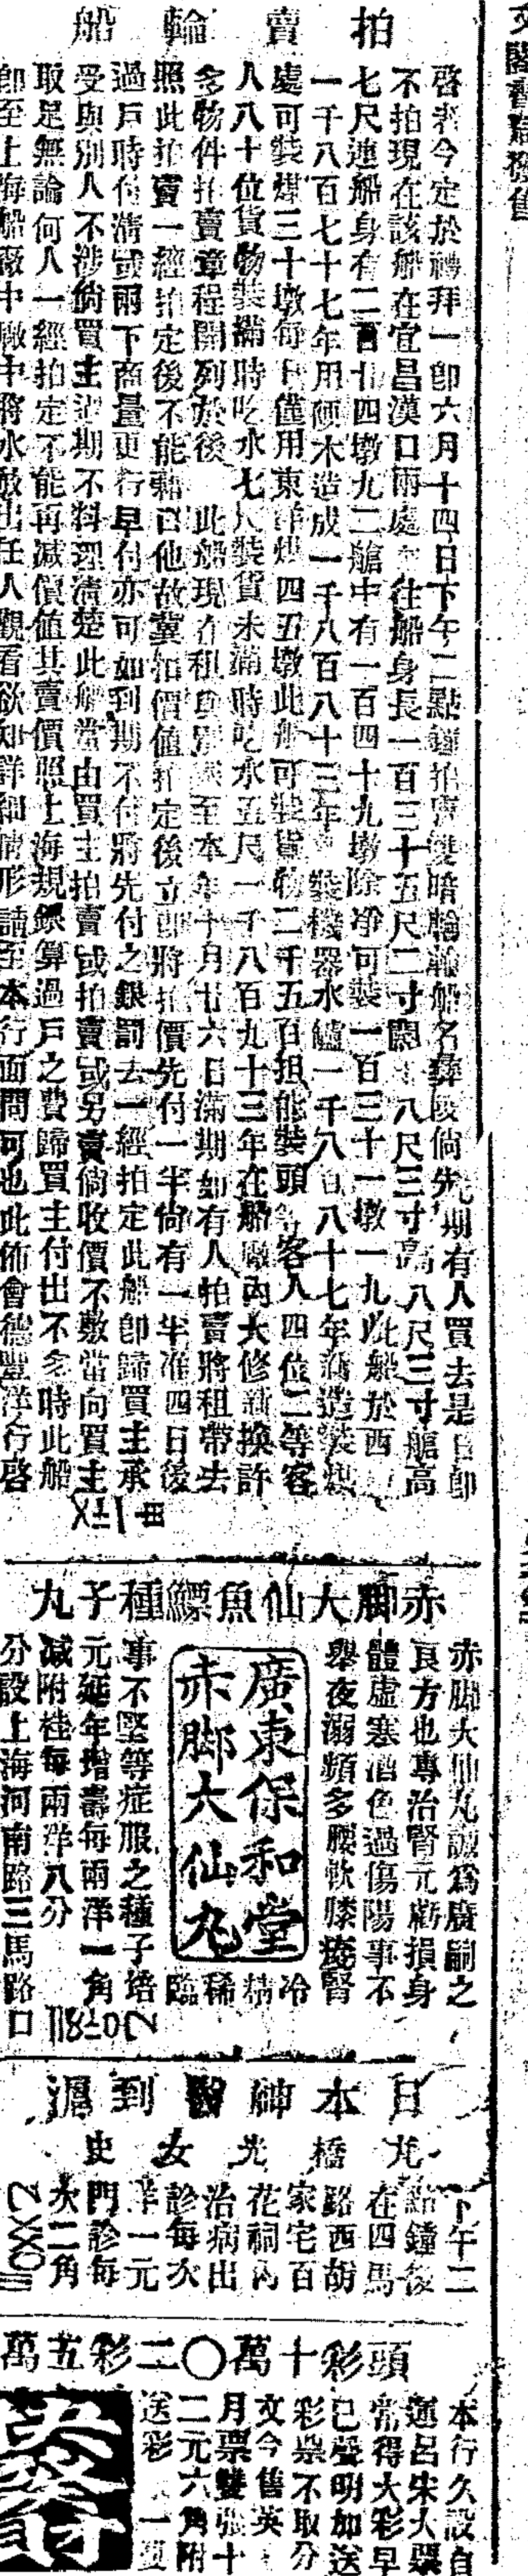 拍賣輪船
啓者今定於禮拜一卽六月十四日下午二點鐘拍賣雙暗輪船名彝陵倘先期有人買去是日卽
不拍現在該船在宜昌漢口兩處來往船身長一百三十五尺二寸闊十八尺三寸高八尺三寸艙高
七尺連船身有二百廿四墩九二艙中有一百四十九墩除淨可裝一百三十一墩一九此船於西
一千八百七十七年用硬木造成一千八百八十三年裝機器水爐一千八百八十七年改造裝煤
處可裝煤三十墩每日僅用東洋煤四五墩此船可裝貨物二千五百担能裝頭等客人四位二等客
人八十位貨物裝滿時吃水七尺裝貨未滿時吃水五尺一千八百九十三年在船廠內大修新換許
多物件拍賣章程開列於後 此船現在租與至本年十月廿六日滿期如有人拍賣將租帶去
照此拍賣一經拍定後不能藉口他故冀扣價值拍定後立卽將拍價先付一半尙有一半准四日後
過戶時付淸或兩下商量更行早付亦可如到期不付將先付之銀罰去一經拍定此船卽歸買主承
受與別人不涉倘買主過期不料理淸楚此船當由買主拍賣或拍賣或另賣倘收價不敷當向買主
取足無論何人一經拍定不能再減價值其賣價照上海規銀算過戶之費歸買主付出不多時此船
卽至上海船廠中廠中將水放出任人觀看欲知詳細情形請至本行面問可也此佈會德豐洋行啓
赤脚大仙魚鰾種子丸
赤脚大仙丸誠爲廣嗣之
良方也專治腎元虧損身
體虛寒酒色過傷陽事不
舉夜溺頻多腰軟膝痠腎
冷精稀臨
廣東保和堂
赤脚大仙丸
事不堅等症服之種子培
元延年增壽每兩洋一角
減附桂每兩洋八分
分設上海河南路三馬路口
日本神醫到滬
橋光女史
下午二
點鐘後
在四馬
路西胡
家宅百
花祠內
治病出
診每次
洋一元
門診每
次二角
頭彩十萬〇二彩五萬
本行久設自
運呂宋大票
常得大彩早
已聲明加送
彩票不取分
文今售英
月票雙張十
二元六角附
送彩一